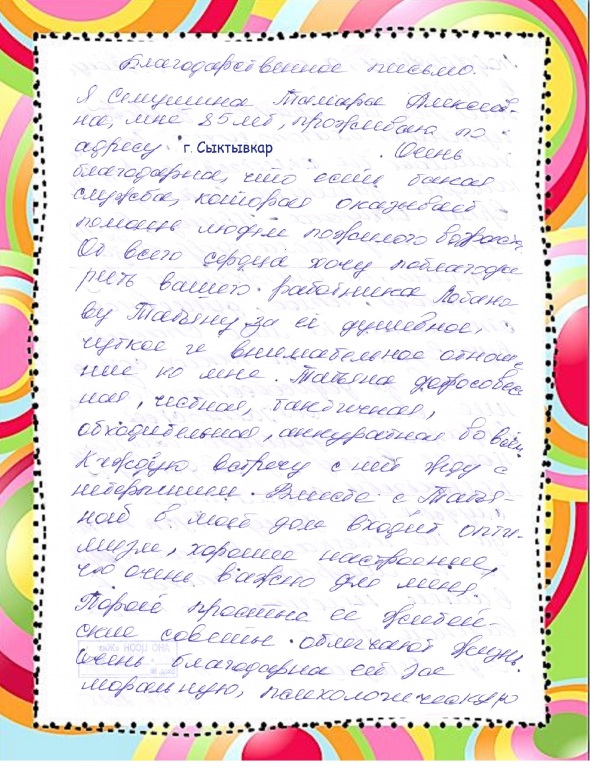 Благодарственное письмо.
Я Семушина Тамара Алексеев-
на, мне 85 лет, проживаю по
адресу г. Сыктывкар. Очень
благодарна, что есть такая
служба, которая оказывает
помощь людям пожилого возраста.
От всего сердца хочу поблагода
рить вашего работника Лобано
ву Татьяну за её душевное,
чуткое и внимательное отноше
ние ко мне. Татьяна добросовес
ная, честная, тактичная,
обходительная, аккуратная во всём.
Каждую встречу с ней жду с
нетерпением. Вместе с Татья-
ной в мой дом входит опти-
мизм, хорошее настроение,
что очень важно для меня.
Порой простые её житей-
ские советы облегчают жизнь.
Очень благодарна ей за
моральную, психологическую